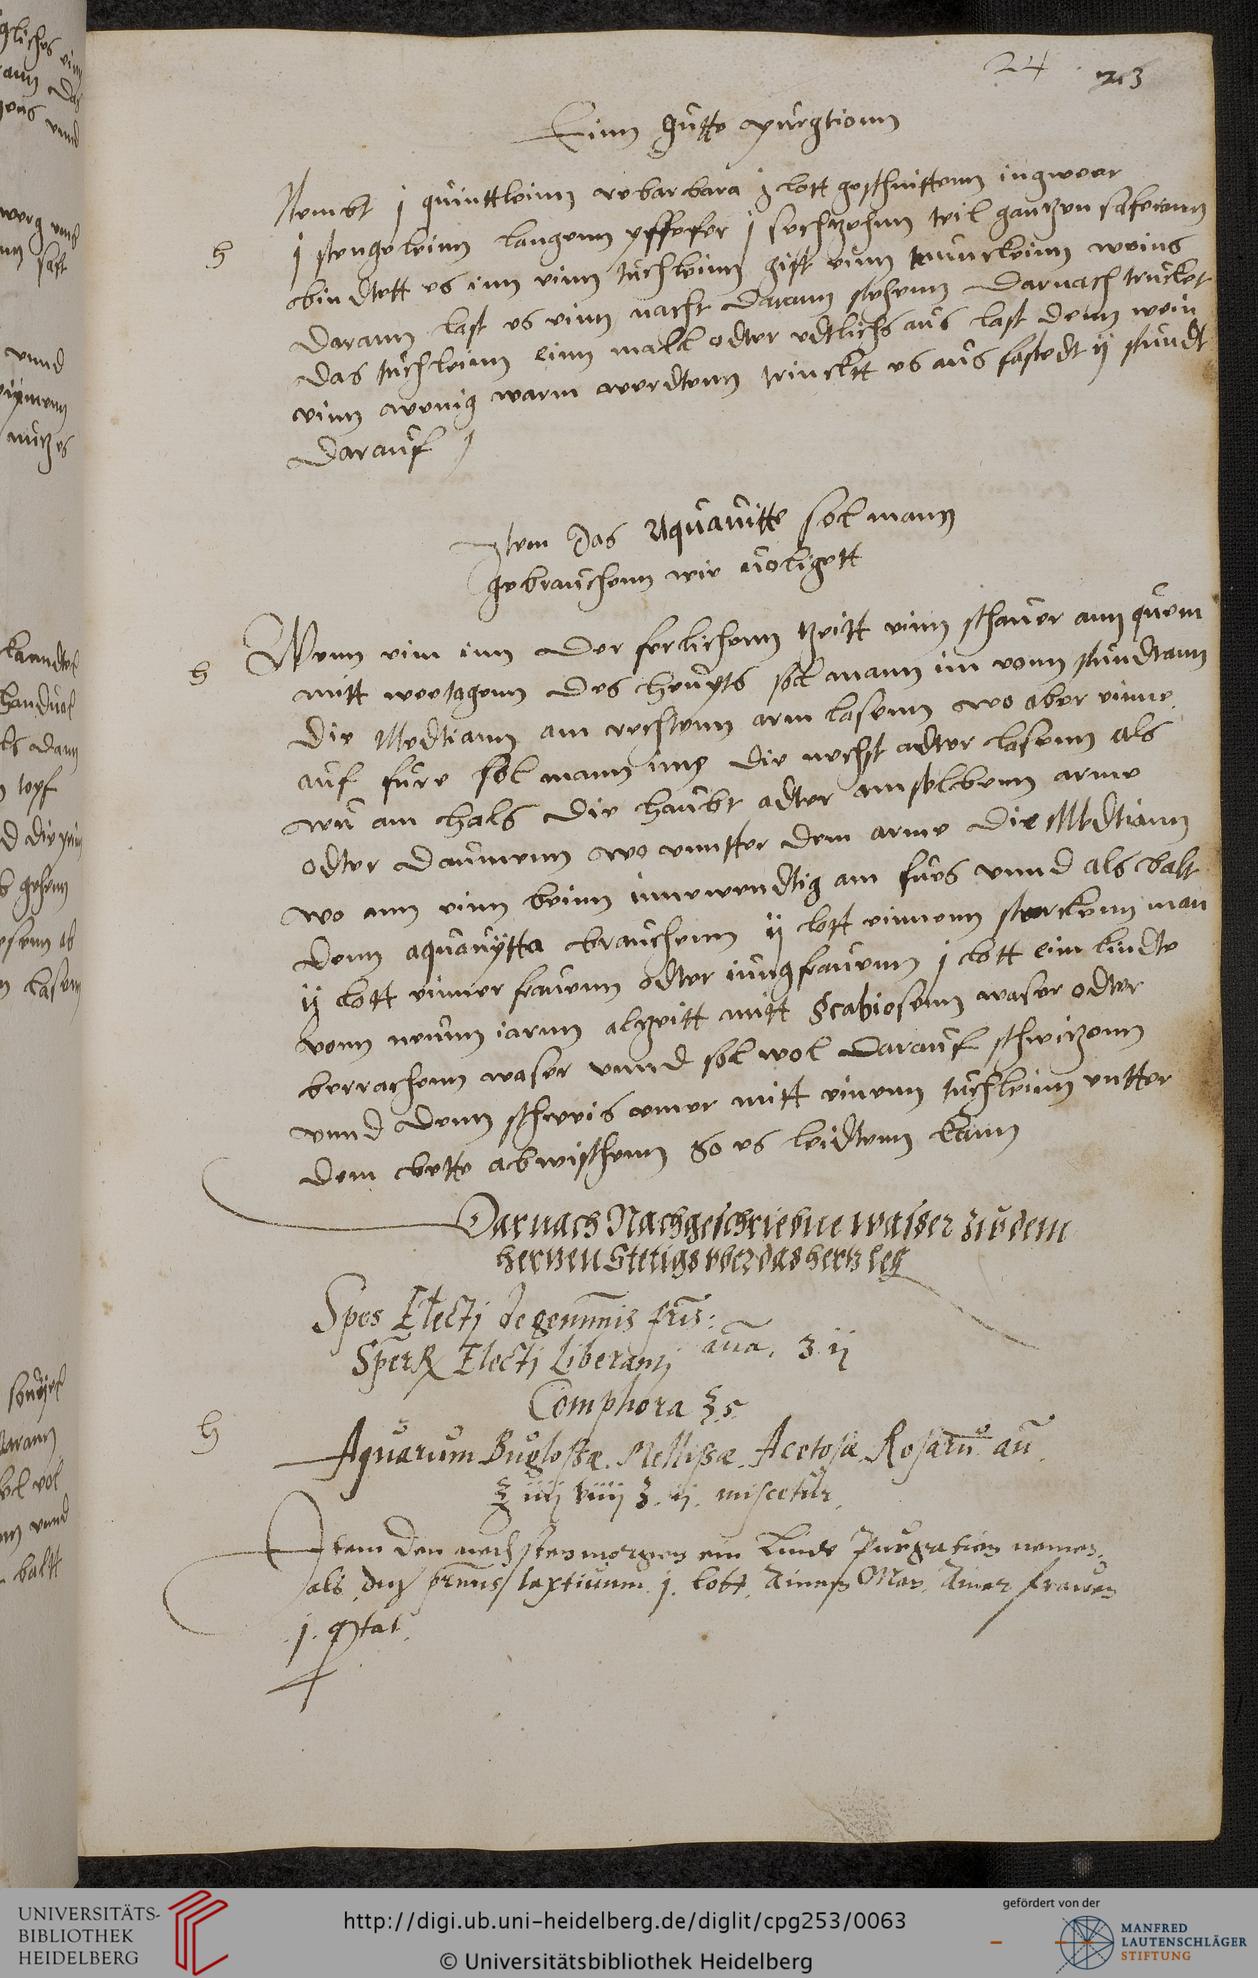 24 23
Einn gutte purgtionn
Nembt j quinttleinn rebarbara j lott geschnittenn ingweer
j stengeleinn langenn pfefer j sechzehnn teil gantzen saferann
bindtett es inn einn tuchleinn gist einn trunckleinn weins
darann last es einn nacht darann stehenn darnach trucket
das tuchleinn einn mall odter edtlichs aus last denn wein
einn wenig warm werdtenn trinckt es aus fastedt ij stundt
darauf
Item das Aquauitte sol mann
gebrauchenn wie uoligett
Wenn eim inn der ferlichenn tzeitt einn schauer ann quem
mitt weetagenn des heupts sol mann im vonn stundtann
die Medtiann am rechtenn arm lasenn wo aber einne
auf fure sol mann ims die nechst adter lasenn als
wu am hals die haubt adter am selbenn arme
odter daumenn wo vnntter dem arme die Medtiann
wo ann einn beinn innewendtig am fues vnnd als balt
denn aquauytta brauchenn ij lott einnenn starckenn man
ij lott einner frauenn odter iungfrauenn j lott eim kindte
vonn neunn iarnn alzeitt mitt Scabiosenn waser odter
berrachenn waser vnnd sol wol darauf schwitzenn
vnnd denn schweis emer mitt einenn tuchleinn untter
dem bette abwischenn so es leidtenn kann
Darnach Nachgeschriebne wasser zu dem
hertzen Stetigs vber das hertz leg
Spes Electj de gemmis fris:
Sper Electj Liberantj ana. ʒ ij
Comphora ʒ s
Aquarum Buglossæ. Mellissæ. Acetosæ. Rosaru. an.
℥ iiij ʒ. ij. miscetur.
Item den nechsten morgen ein Linde Purgation nemen.
als dz prunis laxtiuum. j. lott. Ainem Man. Ainer frawen
.j. qtat.
kandtel
topf
gehenn
vnnd
baltt
UNIVERSITÄTS-
BIBLIOTHEK
HEIDELBERG
http://digi.ub.uni-heidelberg.de/diglit/cpg253/0063
© Universitätsbibliothek Heidelberg
gefördert von der
MANFRED
LAUTENSCHLÄGER
STIFTUNG